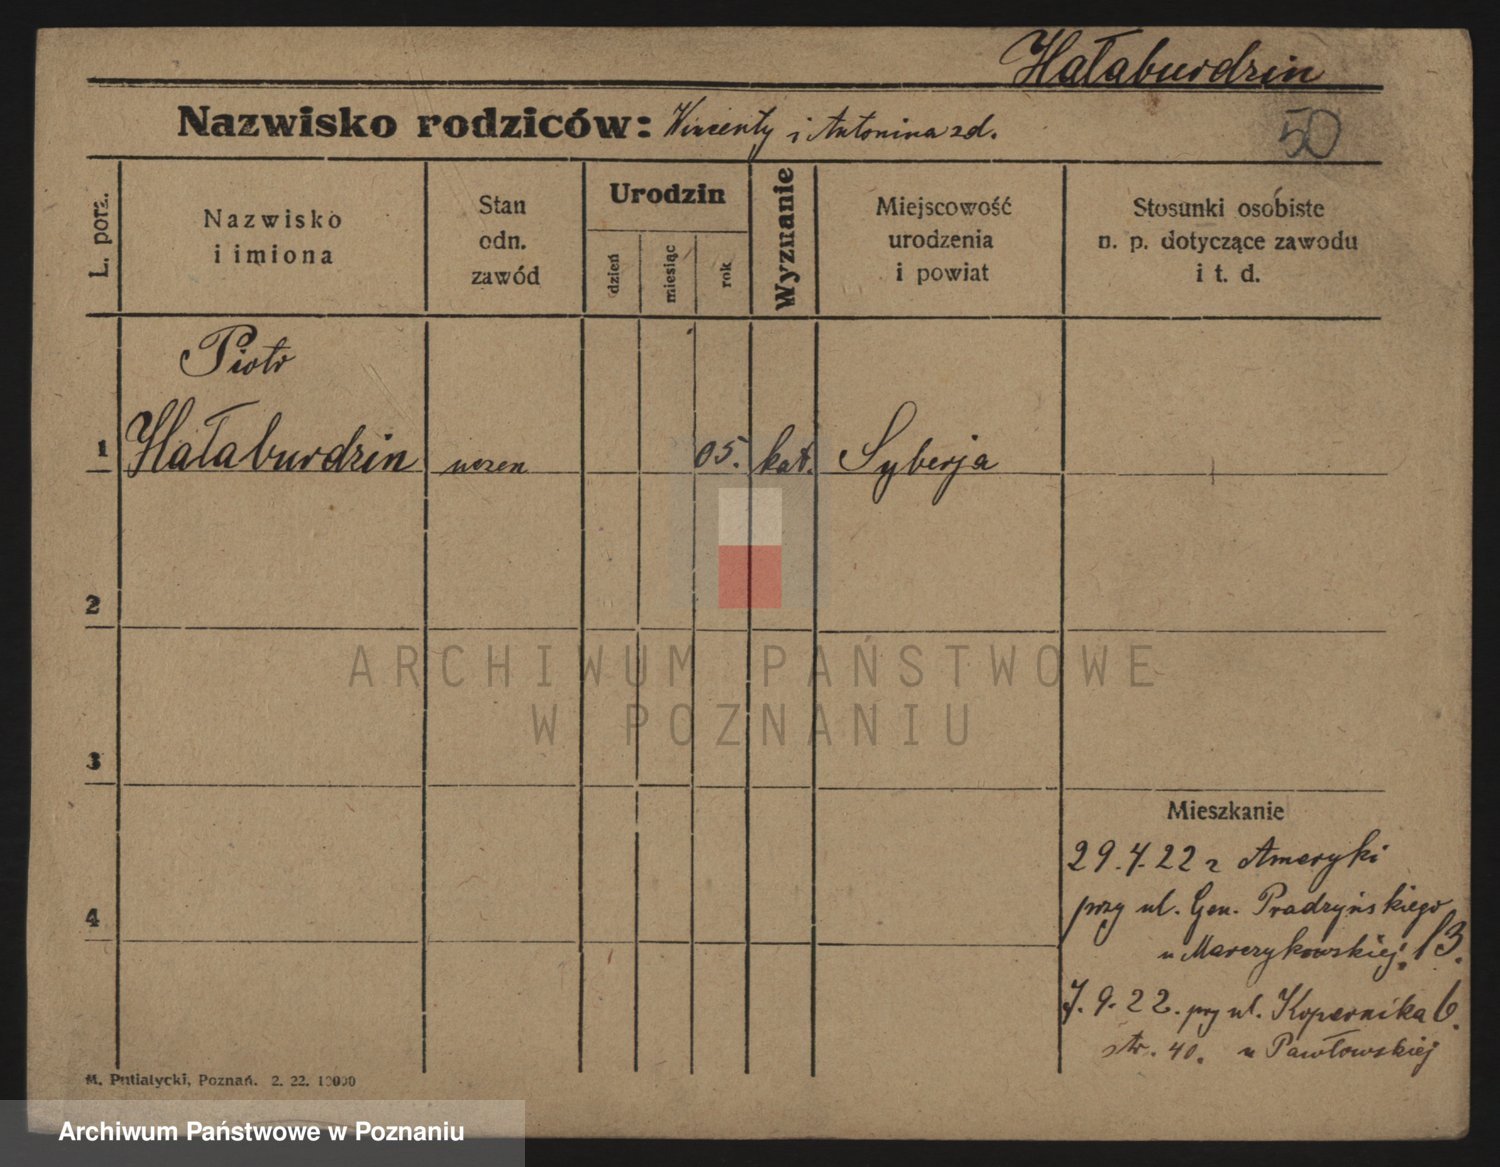 Hałaburdzin
Nazwisko rodziców: Wincenty i Antonina zd.
50
L. porz.
Nazwisko
i imiona
Stan
odn.
zawód
Urodzin
dzień
miesiąc
rok
Wyznanie
Miejscowość
urodzenia
i powiat
Stosunki osobiste
n. p. dotyczące zawodu
i t. d.
Piotr
1 Hałaburdzin uczen 05. kat. Syberja
2
3
4
Mieszkanie
29.4.22 z Ameryki
przy ul. Gen. Prądzyńskiego
u Marczykowskiej. 13.
7.9.22. przy ul. Kopernika 6.
str. 40. u Pawłowskiej
M. Putiatycki, Poznań. 2. 22. 10000
ARCHIWUM PAŃSTWOWE
W POZNANIU
Archiwum Państwowe w Poznaniu